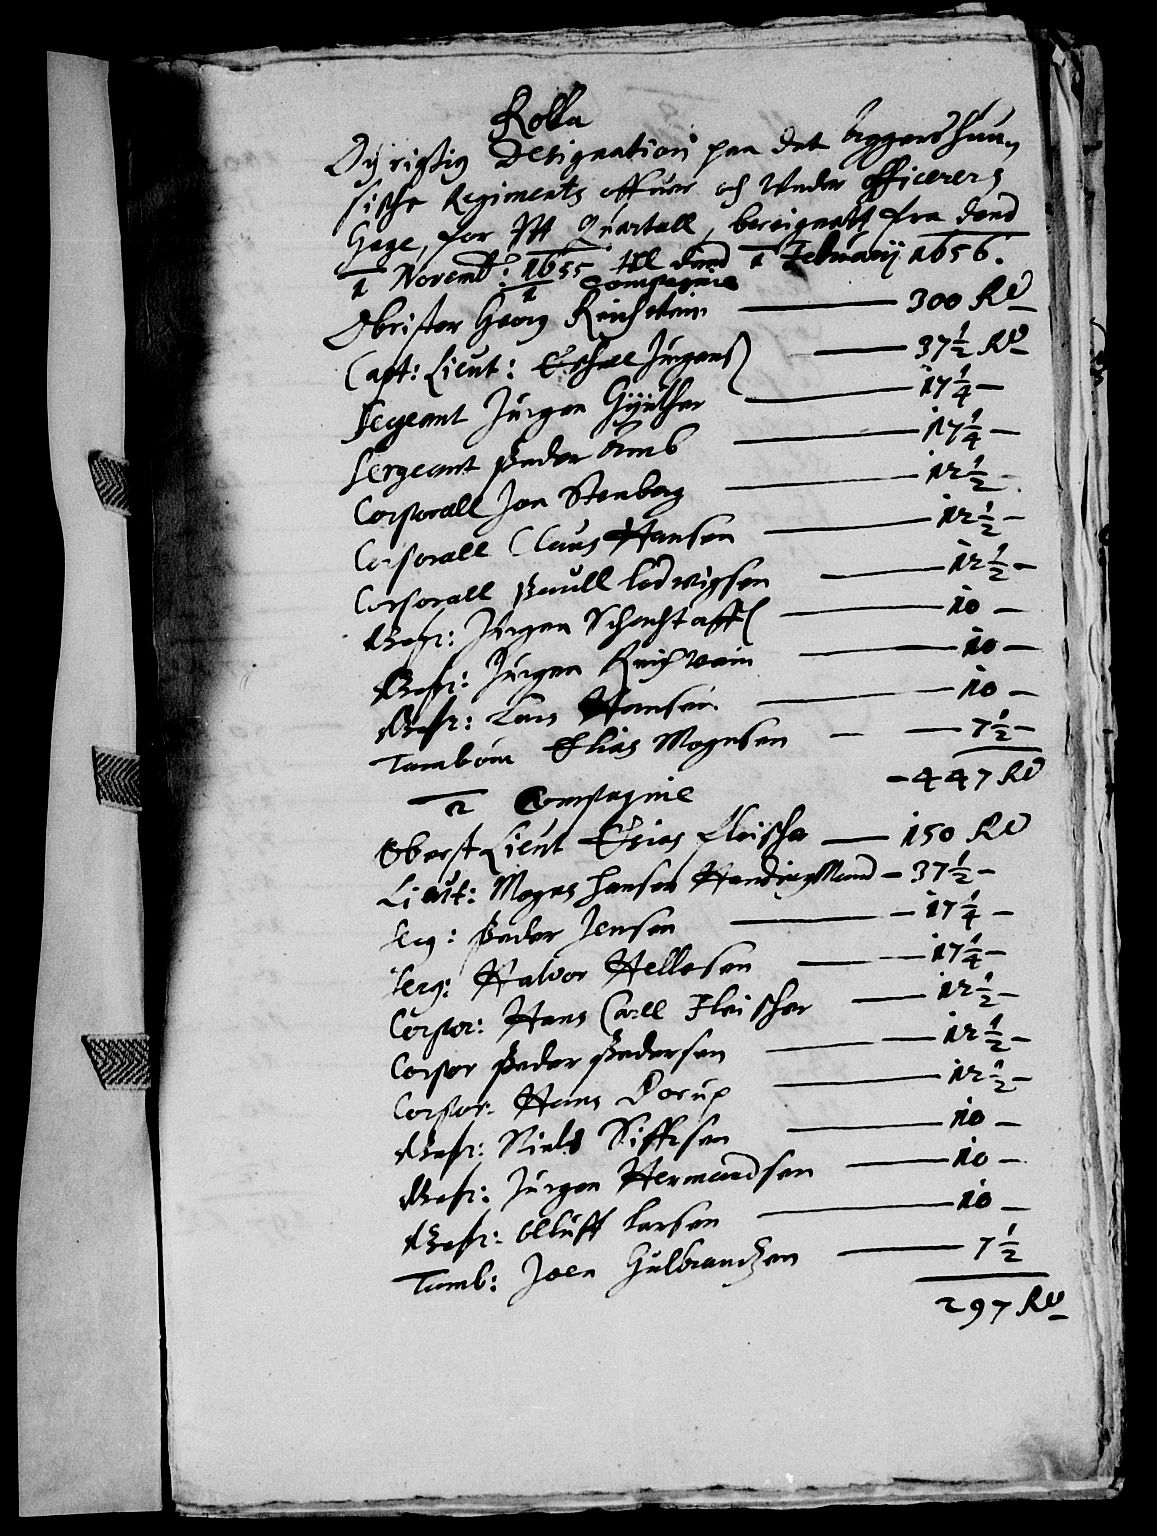 Rolla
Och rigtig Designation paa det Aggershuus
sische Regiments officer och Under Officerers
Gage, for Itt Quartall, bereignett fra dend
1 Novemb: 1655 till dend 1 Februarij 1656.
1 Compagnie
Obrister Georg Reichwein — 300 Rd
Capt: Lieut: Jürgens — 37½ Rd
Segeant Jürgen Gÿnther — 17¼ —
Sergeant Peder — 17¼ —
Corporall Jon Stenberg — 12½ —
Corporall Claus Hansen — 12½ —
Corporall Paull Lodwigsen — 12½ —
Gefr: Jürgen Schochtaff — 10 —
Gefr: Jürgen Reichwein — 10 —
Gefr: Lars Hansen — 10 —
Tambour Elias Mogensen — 7½ —
— 447 Rd
2 Compagnie
Oberst Lieut Fleischer — 150 Rd
Lieut: Mogns Hansen — 37½ —
Serg: Peder Jensen — 17¼ —
Serg: Halvor Hellesen — 17¼ —
Corpor: Hans Carll Fleischer — 12½ —
Corpor Peder Pedersen — 12½ —
Corpor: Hans Dorup — 12½ —
Gefr: Niels Siffrsen — 10 —
Gefr: Jürgen Hermandsen — 10 —
Gefr: Olluff Larsen — 10 —
Tamb: Joen Gulbrandsen — 7½
297 Rd